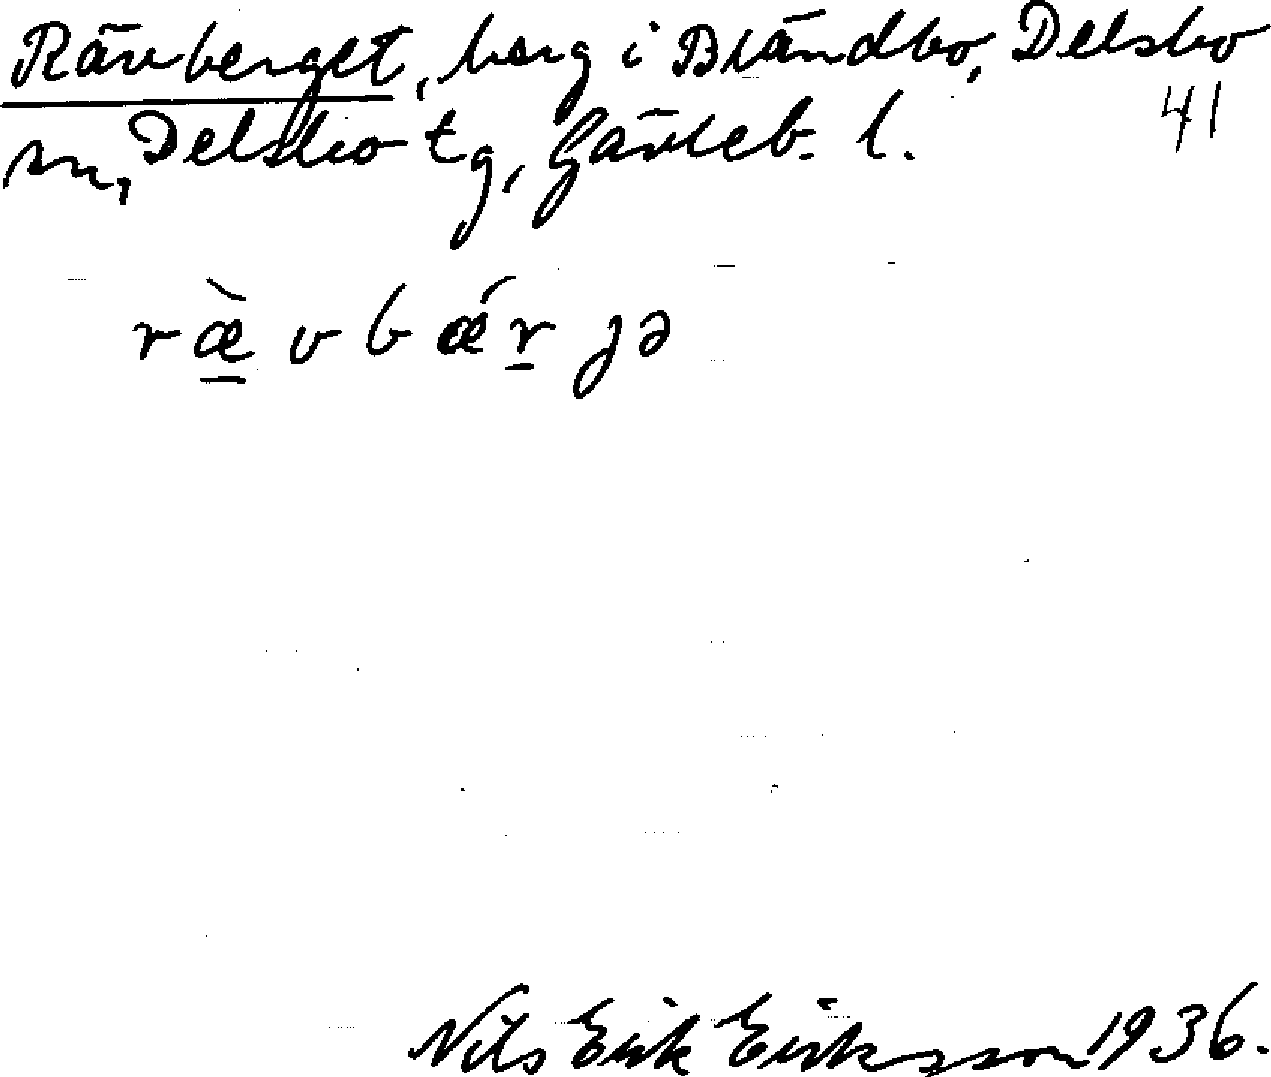 Rävberget, berg i Brändbo, Delsbo
sn, Delsbo tg, Gävleb. l.
41
ræ̱̀vbǽṟjə
Nils Erik Eriksson 1936.